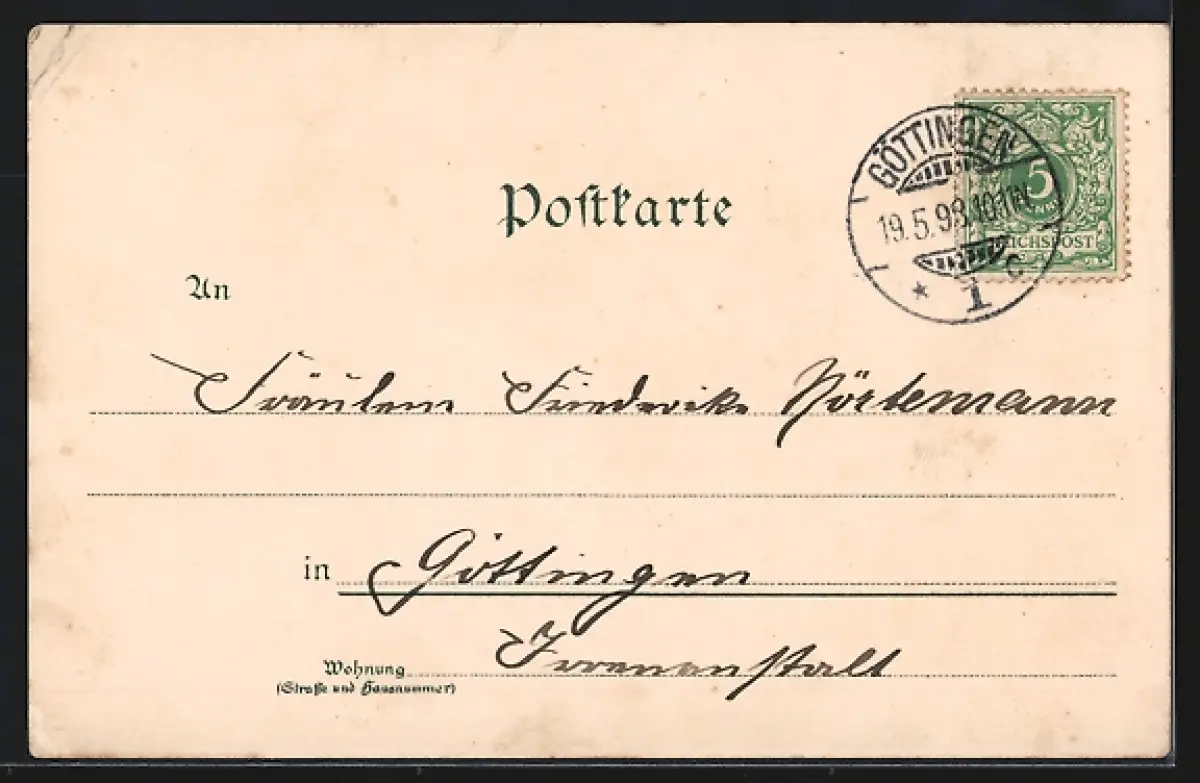 Postkarte
GÖTTINGEN
19.5.98.10-11N.
* 1 C
5
REICHSPOST
An
Fräulein Friederike Körtemann
in Göttingen
Wohnung Irrenanstalt
(Straße und Hausnummer)